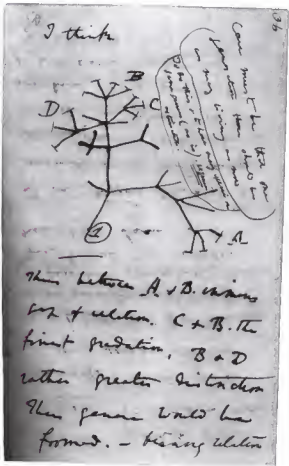 36
I think
Case must be that one
generation then should be
as many living as now
To do this & to have many species in
same genus (as is) requires
extinction.
B
D
C
1
A
Thus between A & B. immense
gap of relation. C & B. the
finest gradation, B & D
rather greater distinction
Thus genera would be
formed. — bearing relation